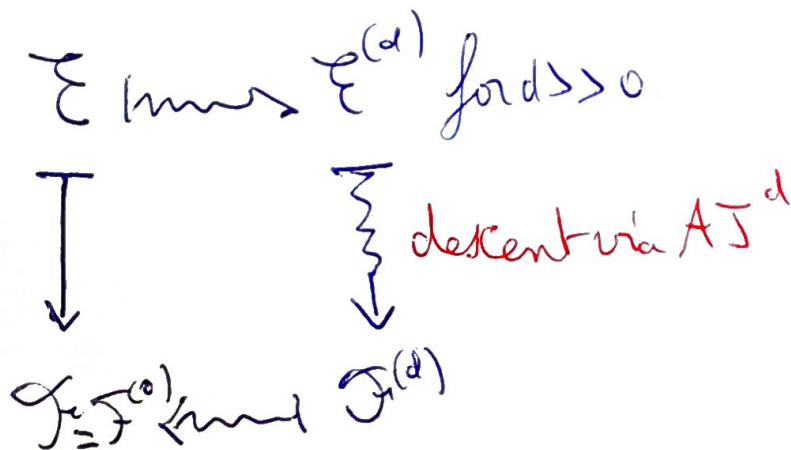 ℰ ↦ ℰ^(d) for d>>0
descent via AJ^d
ℱ=ℱ^(0) ↤ ℱ^(d)